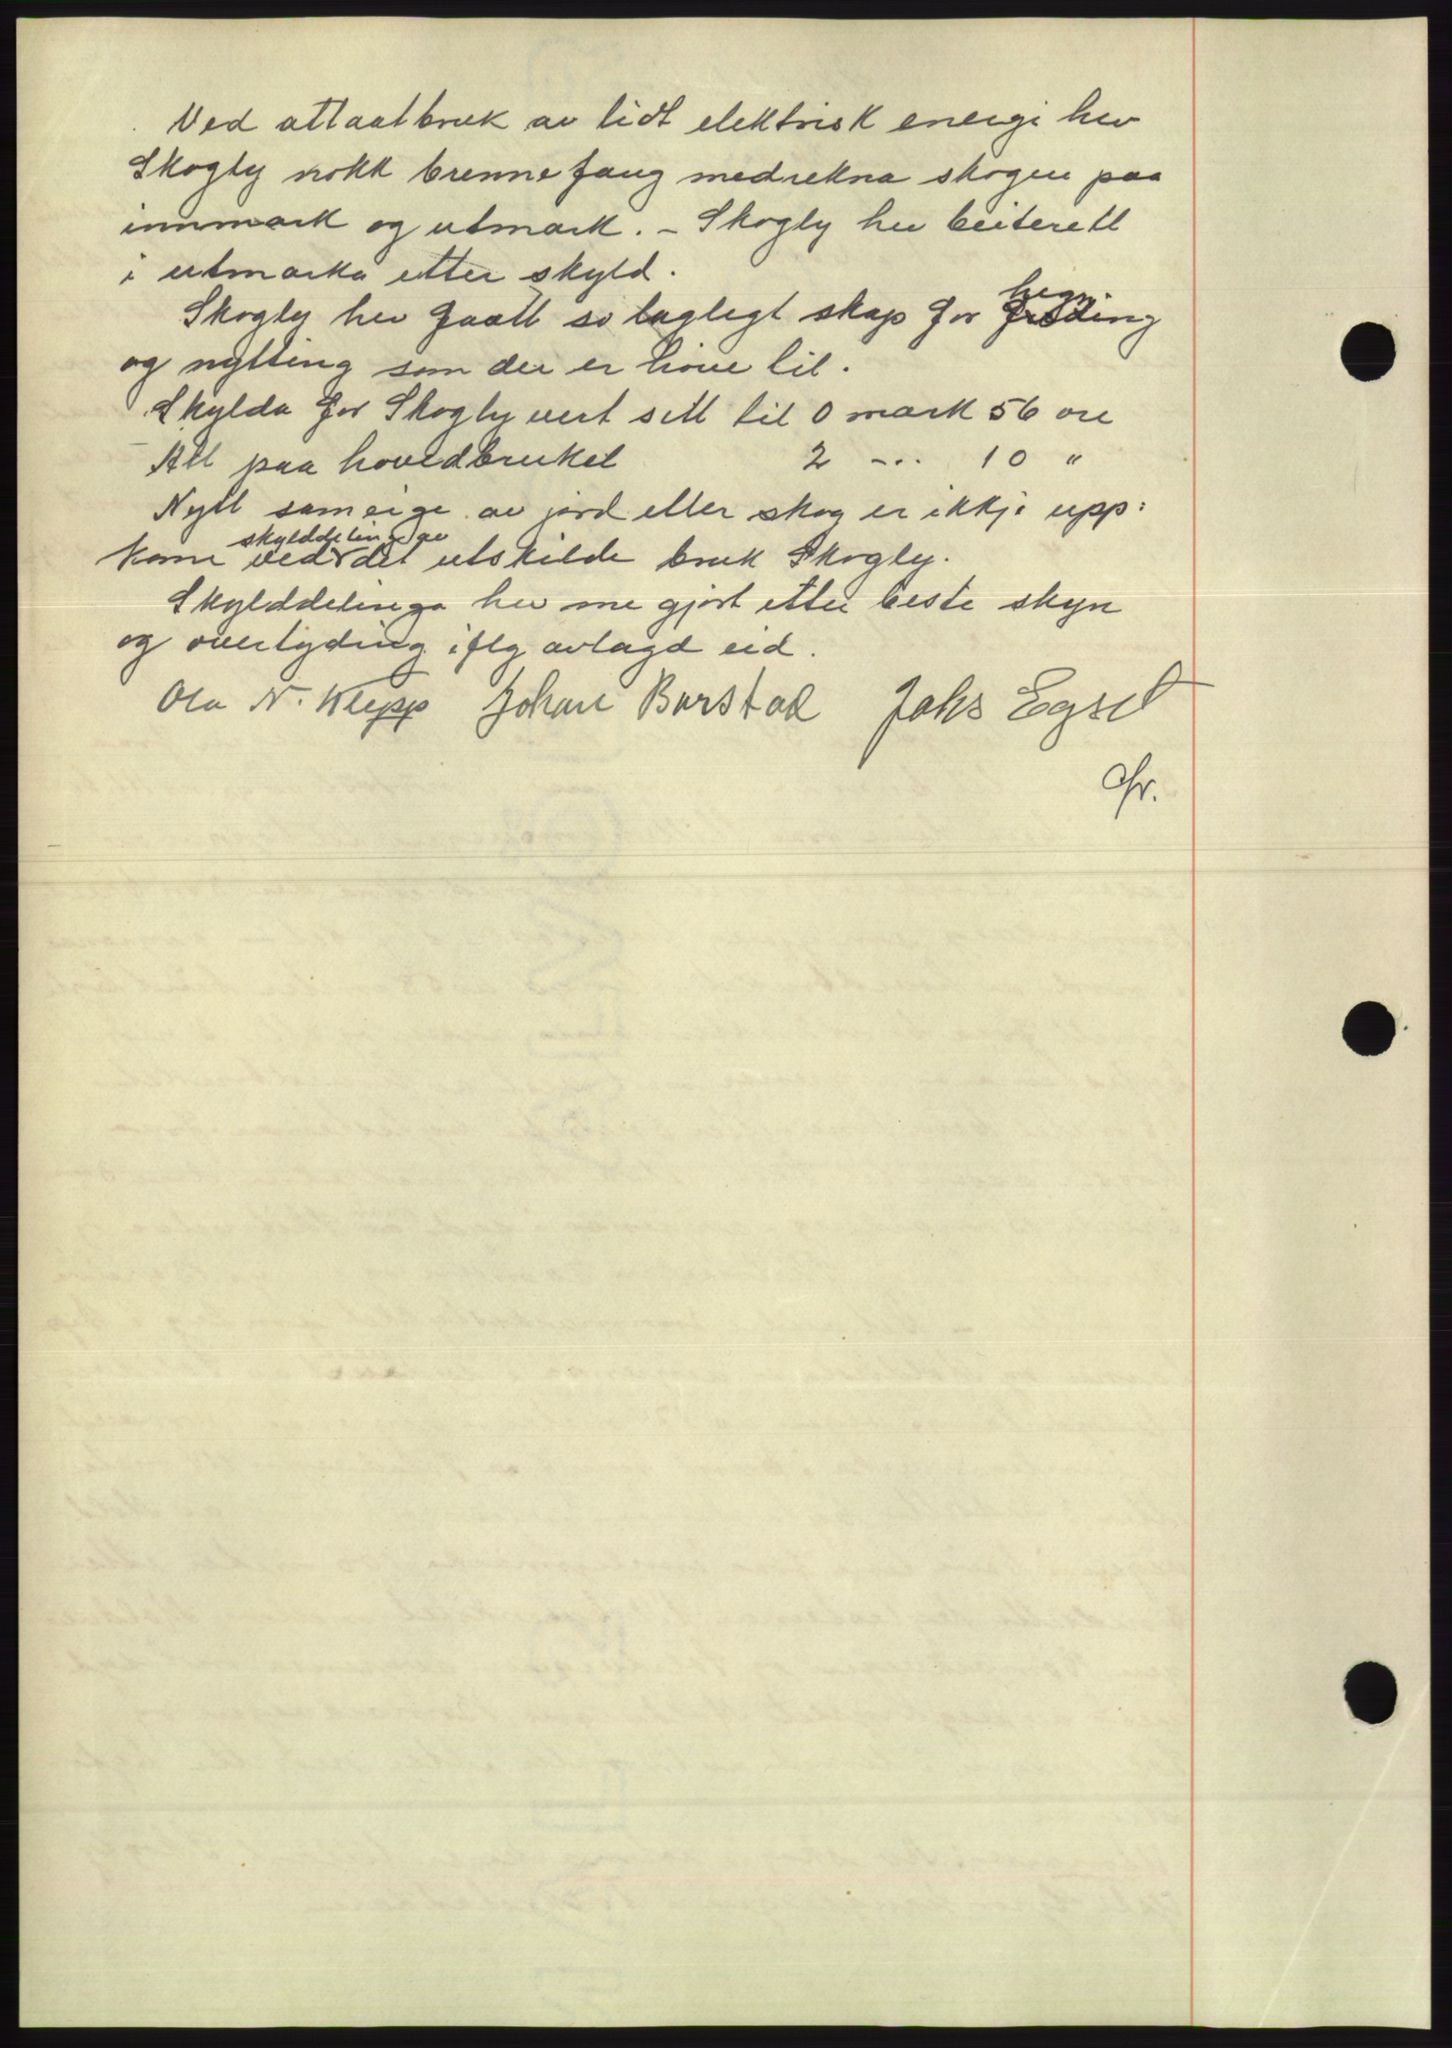 Ved attaatbruk av lidt elektrisk energi hev
Skogly nokk brennefang medrekna skogen paa
innmark og utmark. - Skogly hev beiterett
i utmarka etter skyld.
Skogly hev faatt so laglegt skap for hegning
og nytting som der er høve til.
Skylda for Skogly vert sett til 0 mark 56 øre
Att paa hovedbruket 2 -..- 10 "
Nytt sameige av jord eller skog er ikkje upp:
kome ved skylddelinga av det utskilde bruk Skogly.
Skylddelinga hev me gjort etter beste skyn
og overtyding iflg avlagd eid.
Ola N. Klepp Johan Barstad Jaks Egset